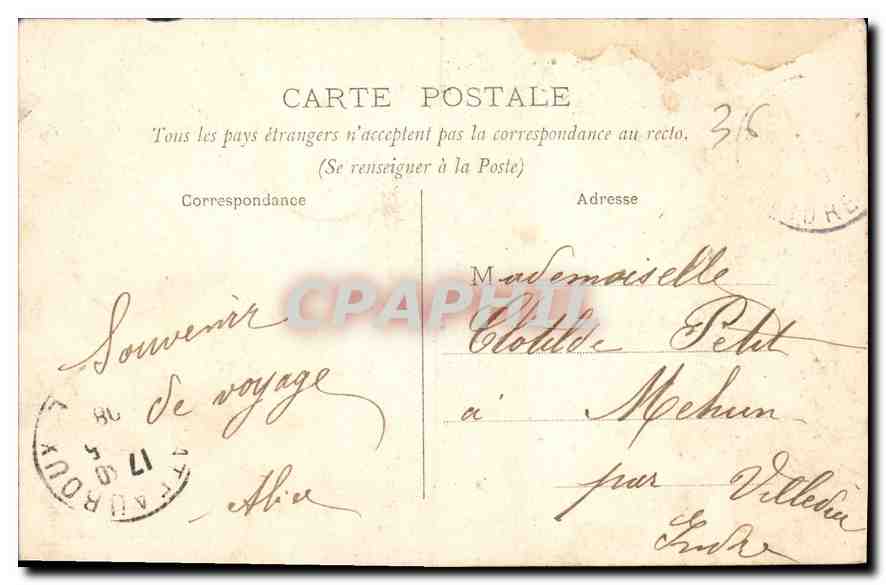 CARTE POSTALE
Tous les pays étrangers n'acceptent pas la correspondance au recto.
(Se renseigner à la Poste)
36
Correspondance
Adresse
INDRE
CPAPHIL
Souvenir
de voyage
Alice
Mademoiselle
Clotilde Petit
à Mehun
par Villedieu
Indre
ATEAUROUX
17
5
08